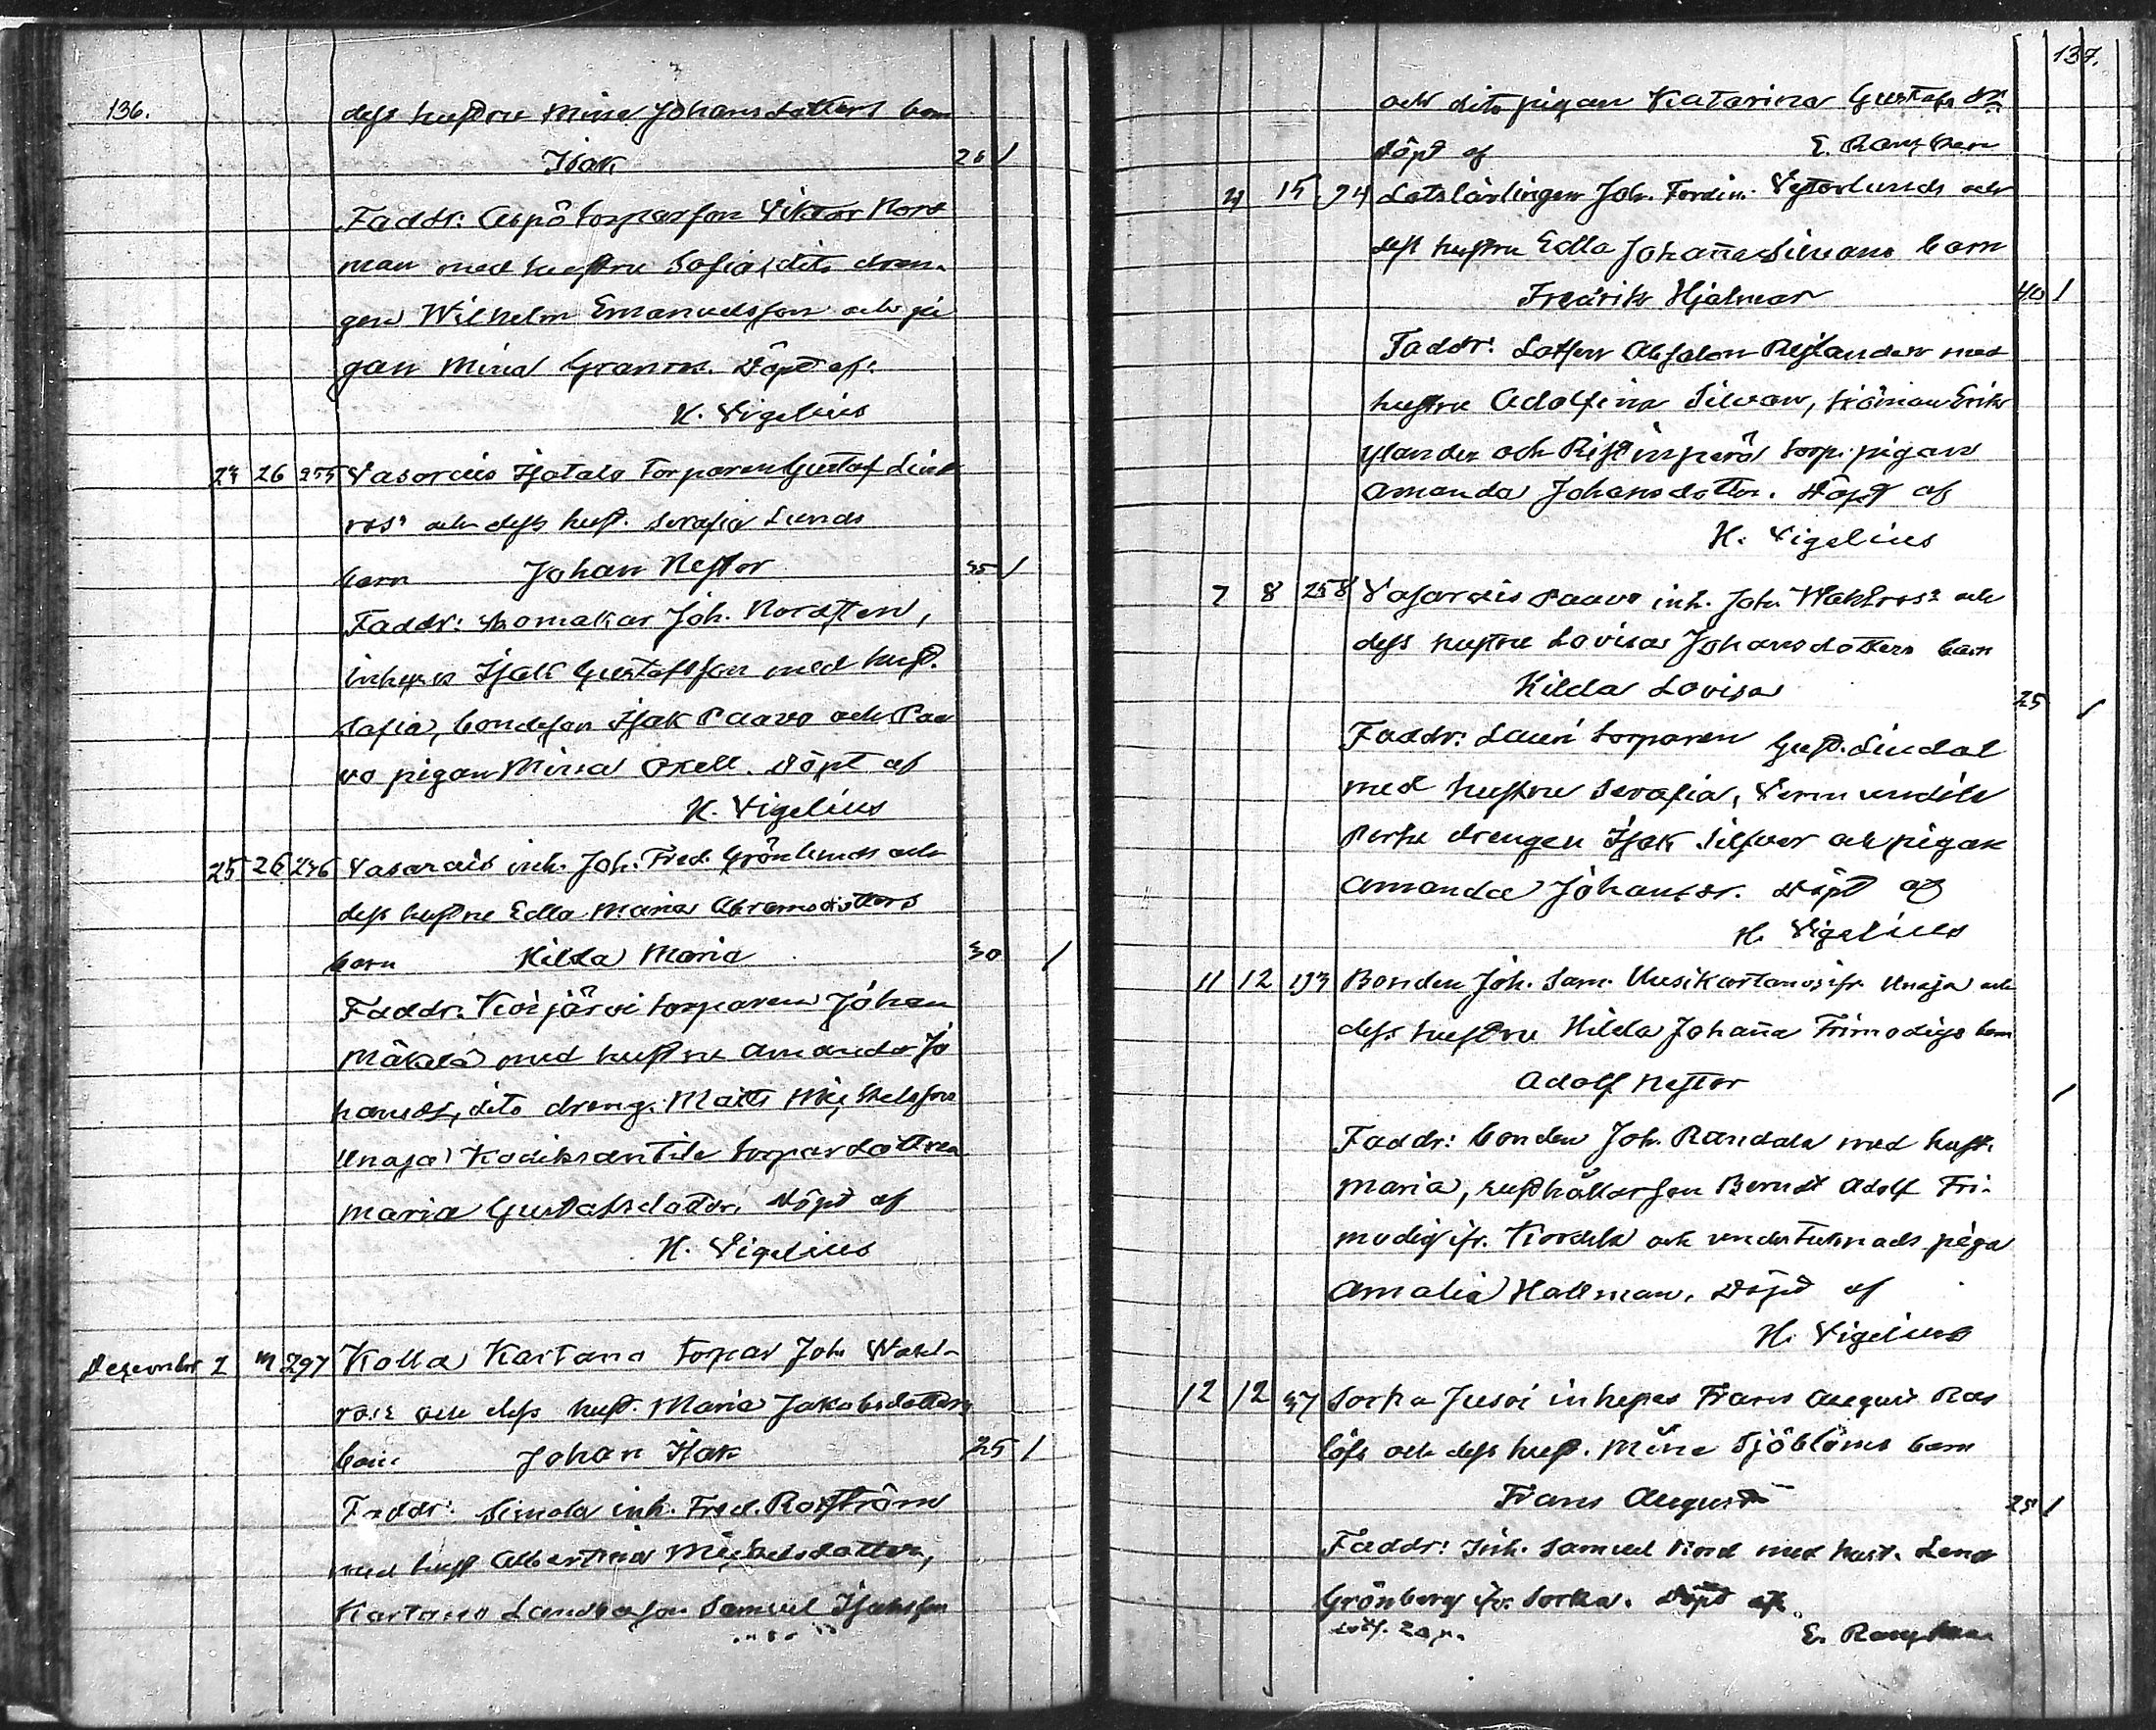 136.
dess hustru Mina Johansdotters barn
Isak 25 /
Faddr: Aspö torparson Viktor Nord
man med hustru Sofia, dito dren-
gen Wilhelm Emanuelsson och pi
gan Mina Granros. Döpt af:
H. Vigelius
24 26 255 Vasarais Isotalo torparen Gustaf Lind
ros' och dess hust. Serafia Lunds
barn Johan Nestor 35 /
Faddr: skomakar Joh. Nordsten,
inhyses Isak Gustafsson med hust.
Sofia, bondeson Isak Paavo och Paa
vo pigan Mina Oxell. Döpt af
H. Vigelius
25 26 256 Vasarais inh. Joh. Fred. Grönlunds och
dess hustru Edla Maria Abramsdotters
barn Hilda Maria 30 /
Faddr: Koijärvi torparen Johan
Mäkelä med hustru Amanda Jo
hansdr, dito dreng. Matts Michelsson
Unaja Kodiksantila torpardottren
Maria Gustafsdotter. Döpt af
H. Vigelius
December 2 297 Kolla Kartano torpar Joh Wahl-
ros's och dess hust. Maria Jakobsdotters
barn Johan Isak 25 /
Faddr: Simola inh. Fred. Rosström
med hust Albertina Michelsdotter,
Kartano Landboson Samuel Isaksson
137.
och dito pigan Katarina Gustafsdr
Döpt af E.
4 15 94 Lotslärlingen Joh. Ferdin. Vesterlunds och
dess hustru Edla Johanna Silvans barn
Fredrik Hjalmar 40 /
Faddr: Lotsen Absalon Rejlander med
hustru Adolfina Silvan, sjöman Erik
ylander och Ristimperä torp. pigan
Amanda Johansdotter. Döpt af
H. Vigelius
7 8 258 Vasarais Paavo inh. Joh. Wahlros's och
dess hustru Lovisa Johansdotters barn
Hilda Lovisa 25 /
Faddr: Lauri torparen Gust. Lindal
med hustru Serafia, Vermundila
Perttu drengen Isak Silfver och pigan
Amanda Johansdr. Döpt af
H. Vigelius
11 12 193 Bonden Joh. Sam. Uusikartanos ifr. Unaja och
dess hustru Hilda Johanna Frimodigs barn
Adolf Nestor /
Faddr: bonden Joh. Randala med hust.
Maria, rusthållarson Berndt Adolf Fri-
modig ifr. Kordela och understuknads piga
Amalia Hallman. Döpt af
H. Vigelius
12 12 37 Sorka Jusoi inhyses Frans August Ros
löfs och dess hust. Mina Sjöbloms barn
Frans August 25 /
Faddr: Inh. Samuel Nord med hust. Lena
Grönberg ifr. Sorka. Döpt af
E.